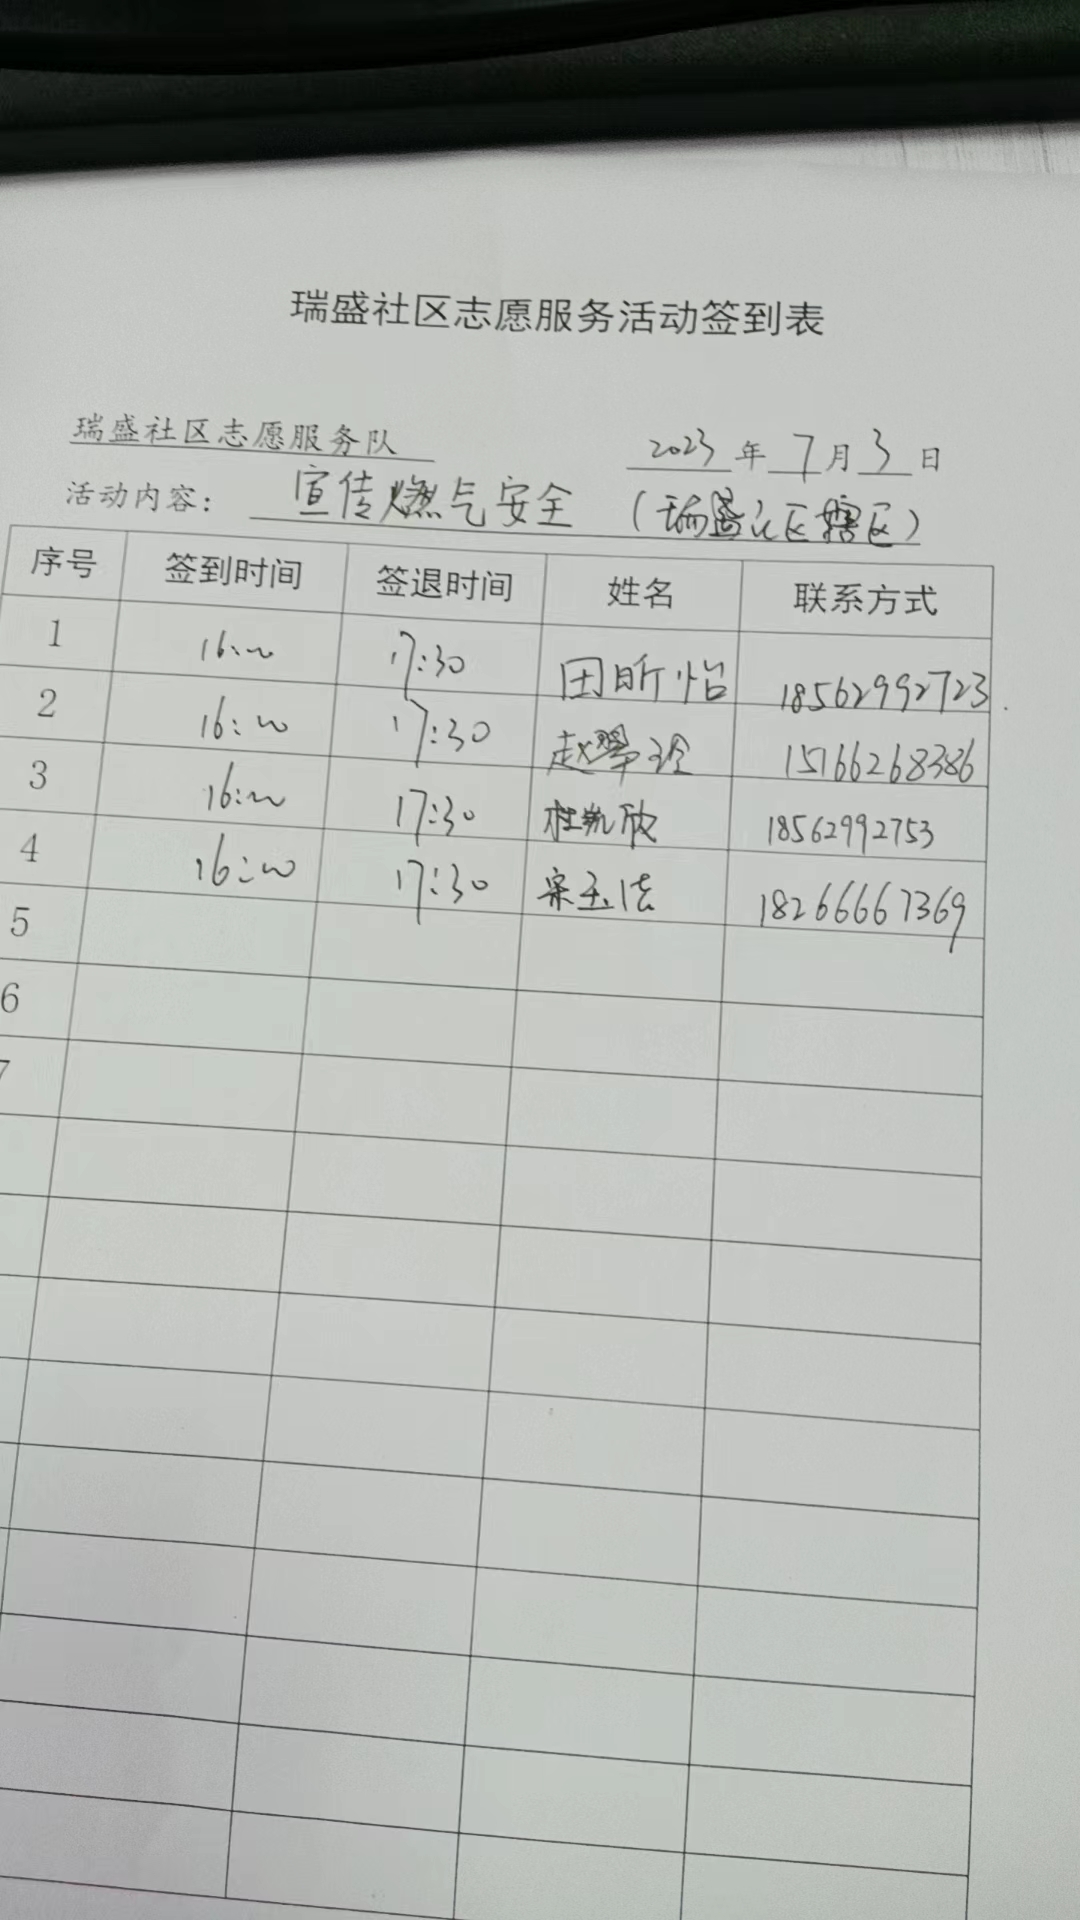 瑞盛社区志愿服务活动签到表
瑞盛社区志愿服务队 2023 年 7 月 3 日
活动内容： 宣传燃气安全 （瑞盛社区辖区）
序号 签到时间 签退时间 姓名 联系方式
1 16:00 17:30 田昕怡 18562992723
2 16:00 17:30 赵翠玲 15166268386
3 16:00 17:30 杜凯欣 18562992753
4 16:00 17:30 宋玉法 18266667369
5
6
7